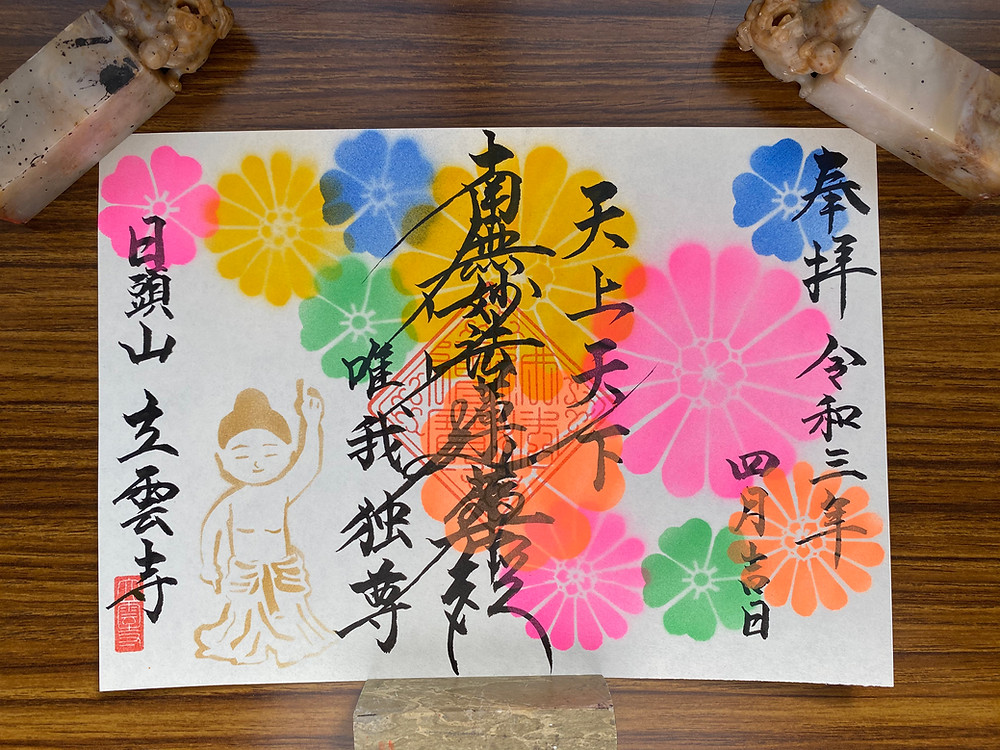 奉拝 令和三年
四月吉日
天上天下
南無妙法蓮華経
唯我独尊
日頭山 立雲寺
立雲寺